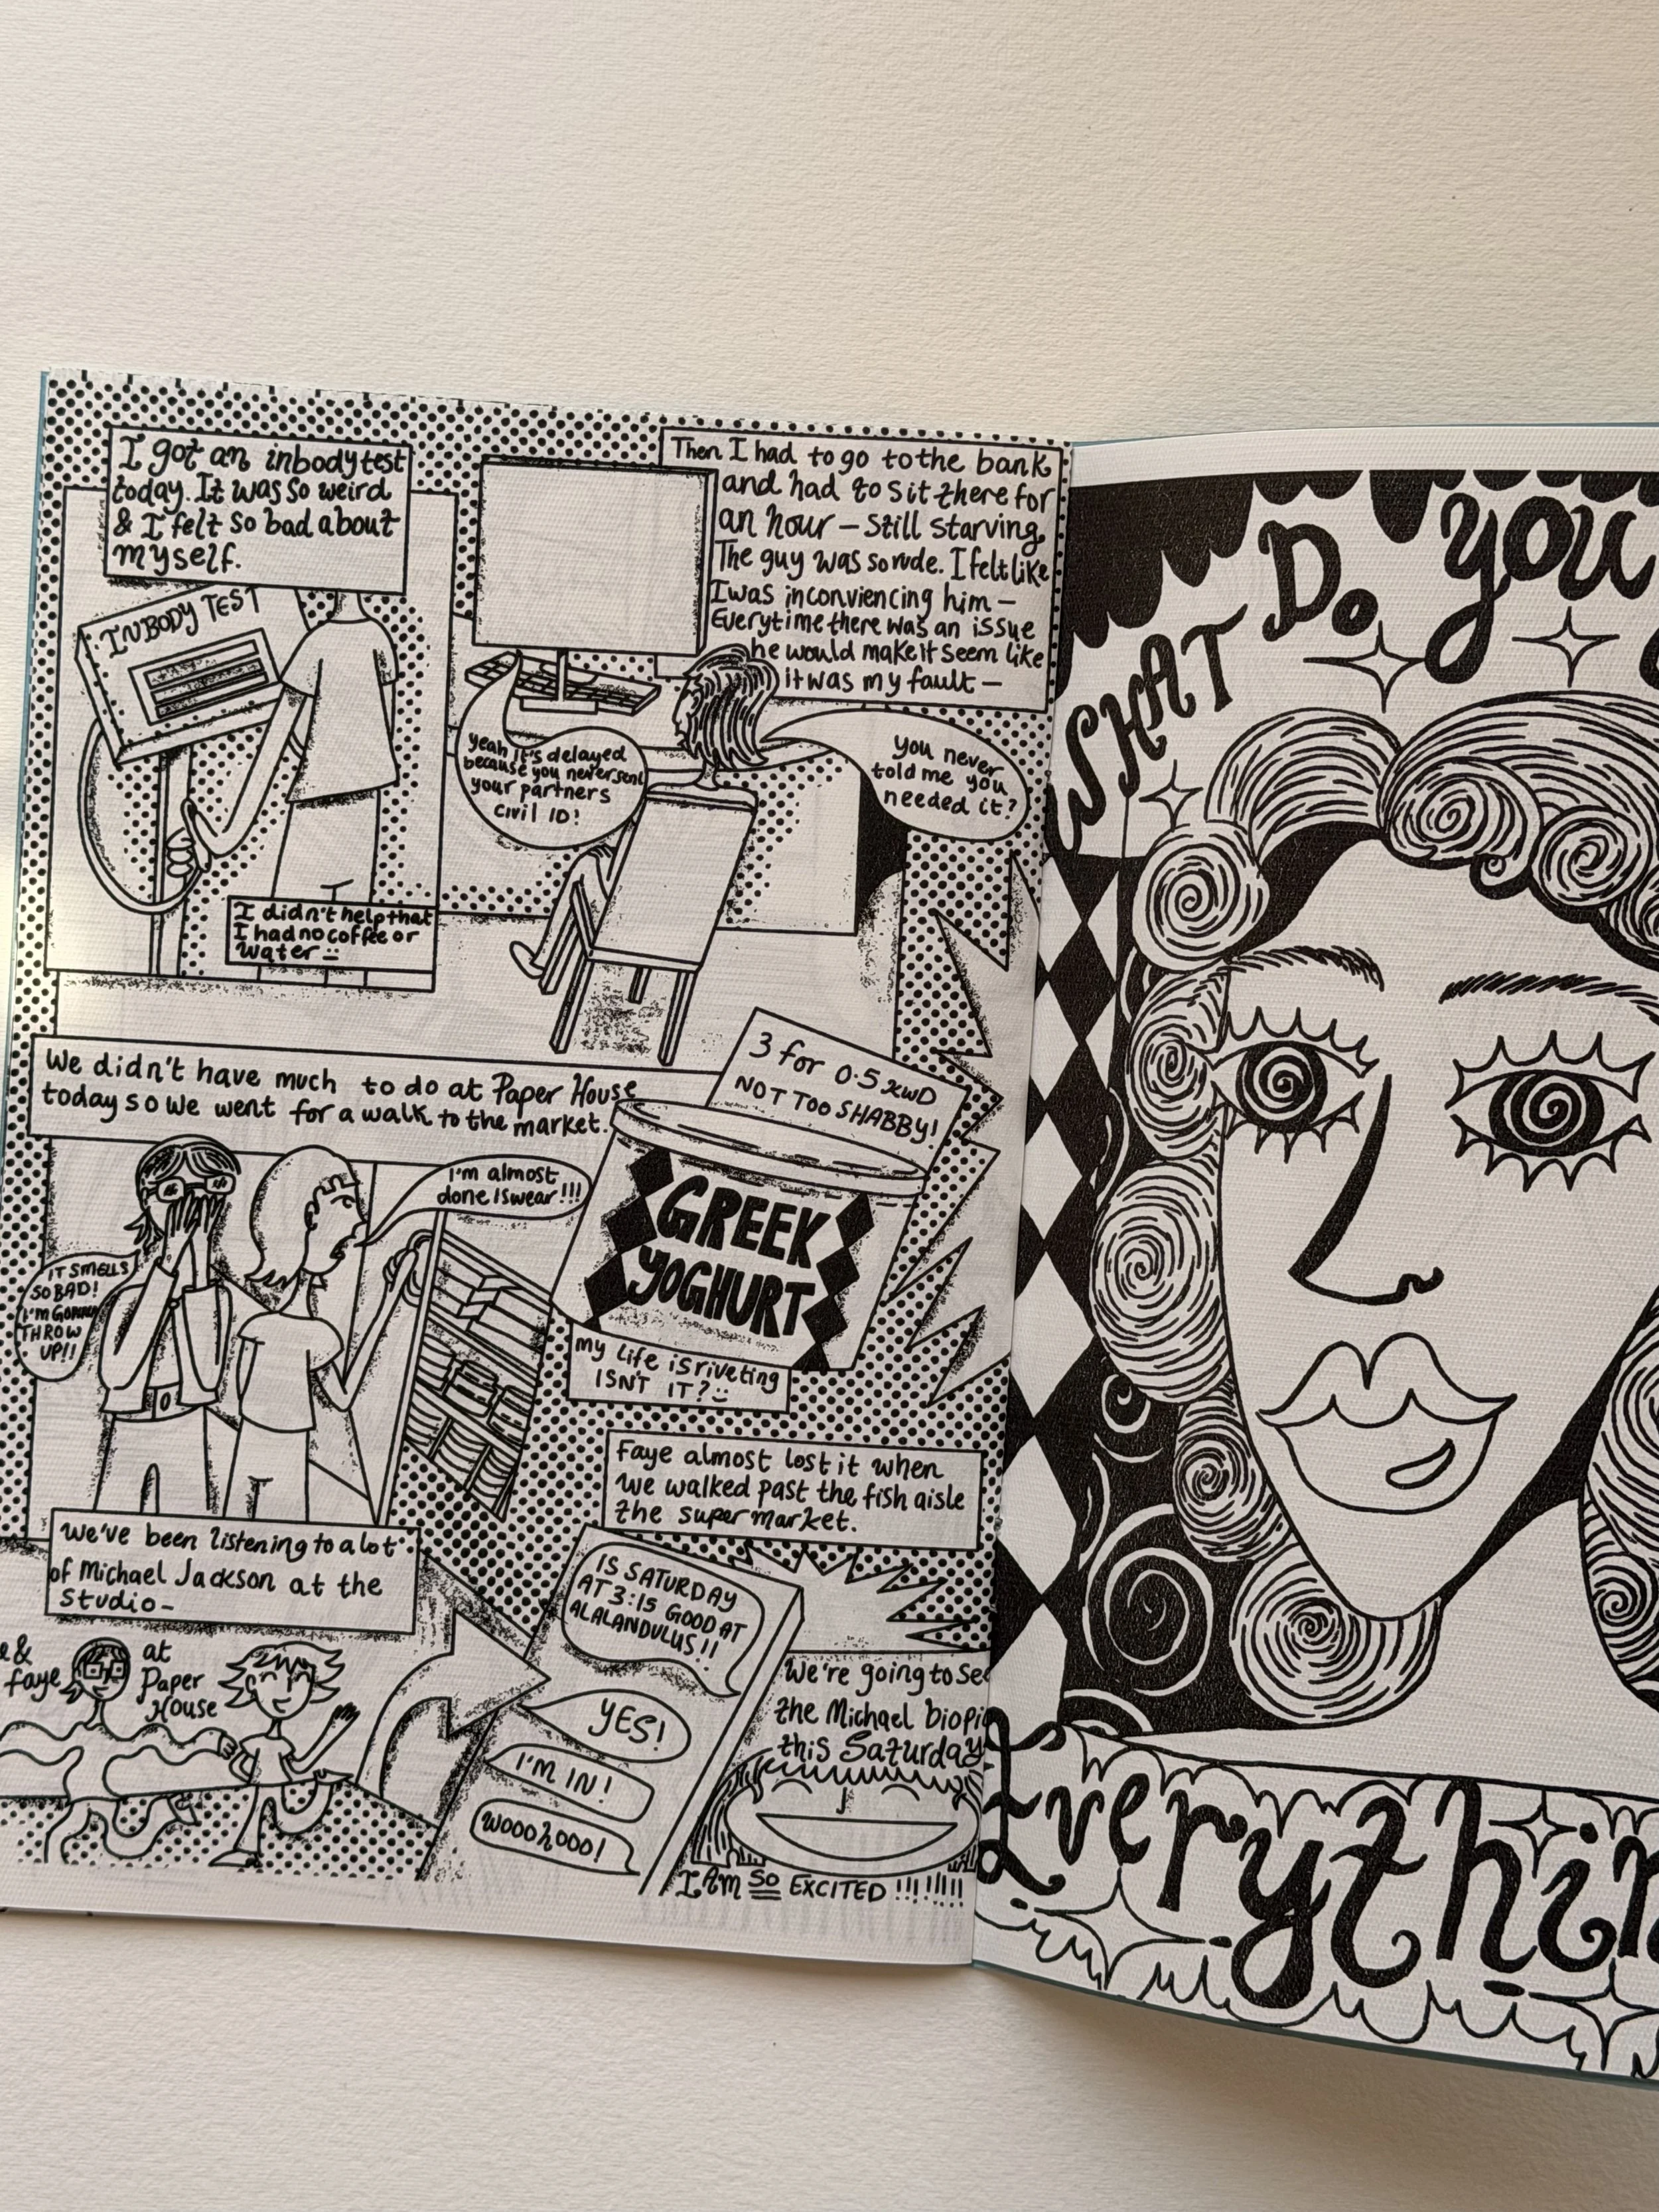 I got an inbody test
today. It was so weird
& I felt so bad about
myself.
INBODY TEST
I didn't help that
I had no coffee or
water :-
Then I had to go to the bank
and had to sit there for
an hour – still starving
The guy was so rude. I felt like
I was inconviencing him –
Everytime there was an issue
he would make it seem like
it was my fault –
yeah it's delayed
because you never sent
your partners
civil ID!
you never
told me you
needed it?
We didn't have much to do at Paper House
today so we went for a walk to the market.
3 for 0.5 KWD
NOT TOO SHABBY!
I'm almost
done I swear!!!
IT SMELLS
SO BAD!
I'M GONNA
THROW
UP!!
GREEK
YOGHURT
my life is riveting
ISN'T IT? :-
Faye almost lost it when
we walked past the fish aisle
the supermarket.
We've been listening to a lot
of Michael Jackson at the
studio –
&
faye
at
Paper
House
IS SATURDAY
AT 3:15 GOOD AT
ALALANDULUS!!
YES!
I'M IN!
WOOOHOOO!
We're going to see
the Michael biopi
this Saturday
I AM SO EXCITED !!!!!!!!
SHAT DO you
Everythin